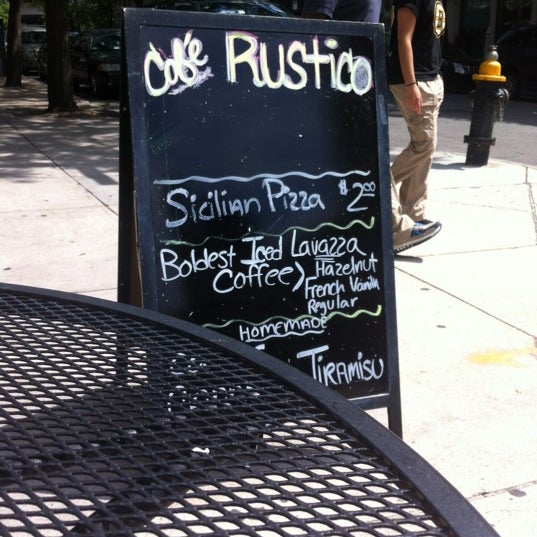 Café Rustico
Sicilian Pizza $2.00
Boldest Iced Lavazza
Coffee > Hazelnut
French Vanilla
Regular
Homemade
Tiramisu